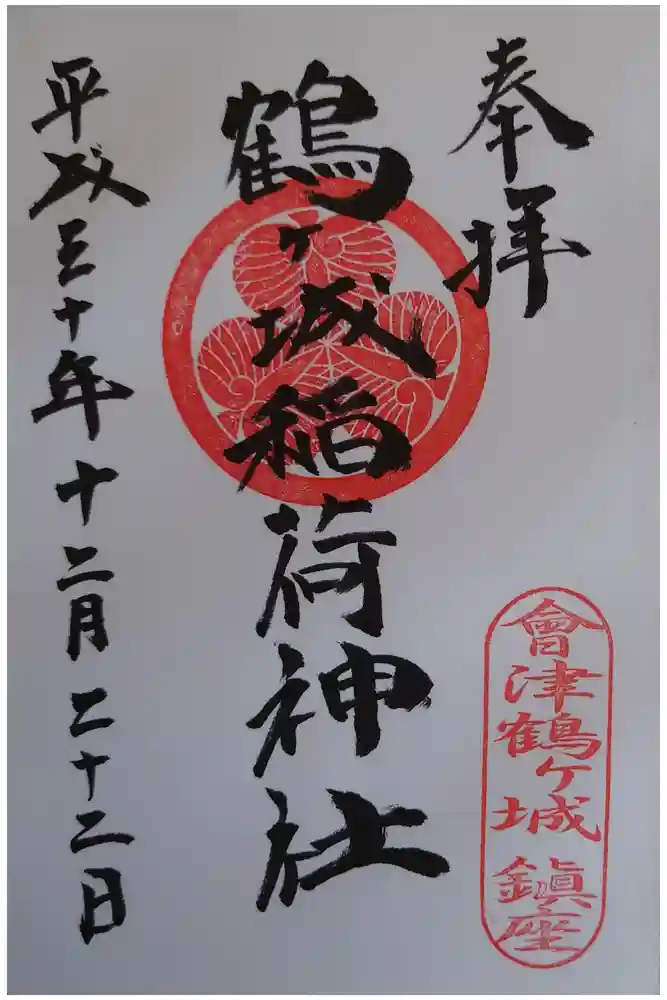 奉拝
會津鶴ヶ城 鎮座
鶴ヶ城稲荷神社
平成三十年十二月二十二日